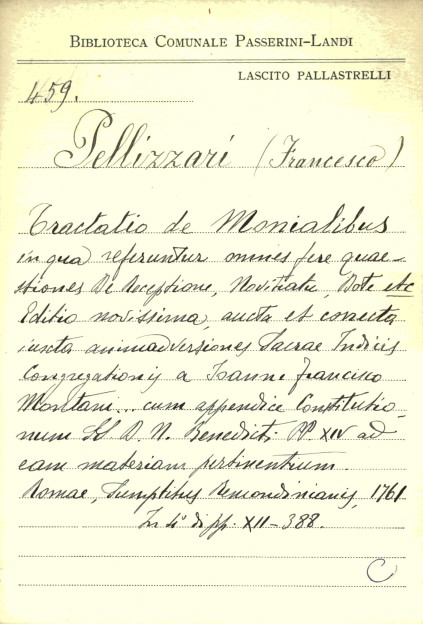 BIBLIOTECA COMUNALE PASSERINI-LANDI
LASCITO PALLASTRELLI
459.
Pellizzari (Francesco)
Tractatio de Monialibus
in qua referuntur omnes fere quae-
stiones De Receptione, Novitiatu, Dote etc
Editio novissima, aucta et correcta
iuxta animadversiones Sacrae Indicis
Congregationis a Ioanne Francisco
Montani... cum appendice Constitutio-
num SS D. N. Benedicti PP XIV ad
eam materiam pertinentium.
Romae, Sumptibus Remondinianis, 1761
In 4° di pp. XII-388.
C